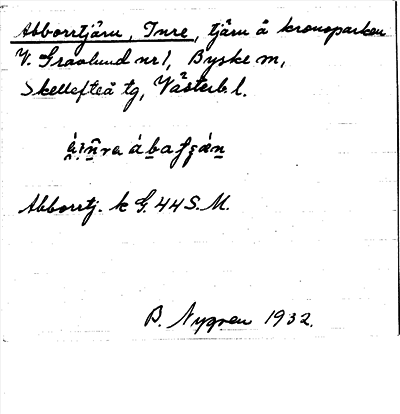 Abborrtjärn, Inre, tjärn å kronoparken
V. Gravlund nr 1, Byske m,
Skellefteå tg, Västerb. l.
Abborrtj. k G. 44 S.M.
B. Nygren 1932.